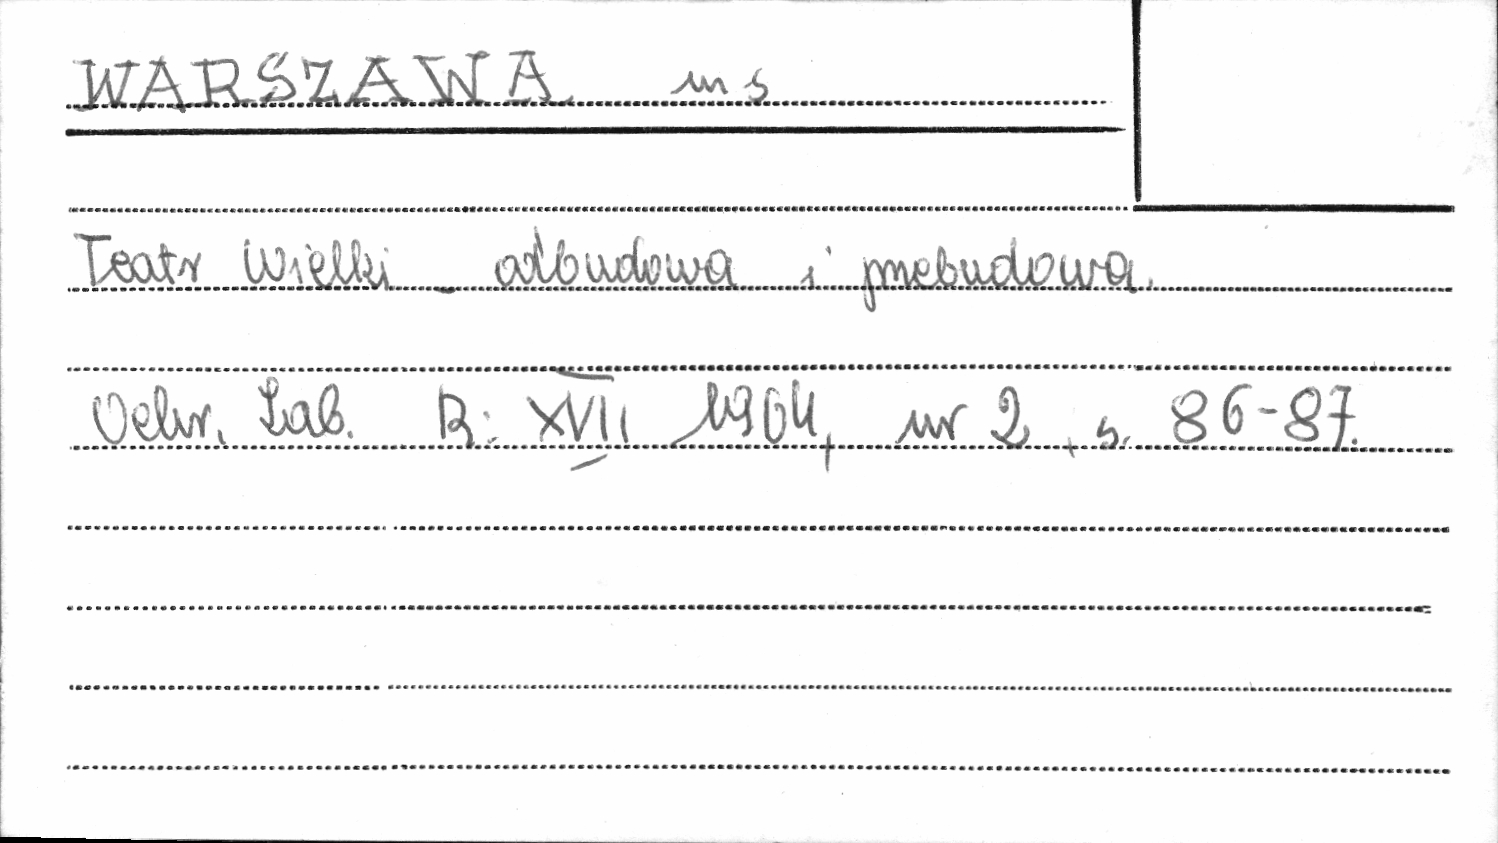 WARSZAWA ms
Teatr Wielki - odbudowa i przebudowa.
Ochr. Zab. R: XVII 1964, nr 2, s. 86-87.